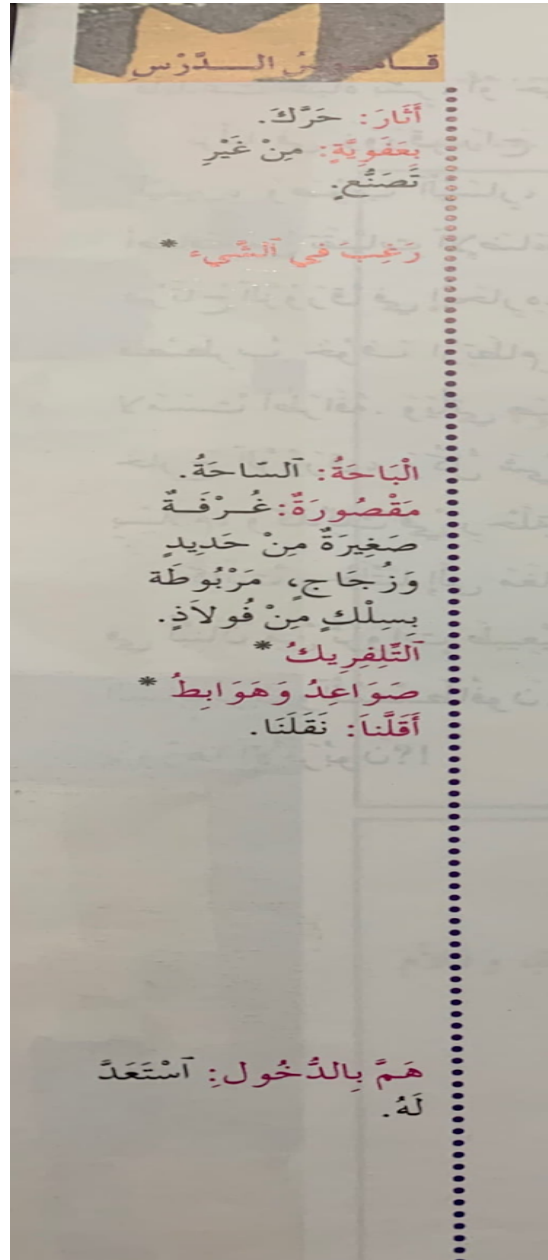 قامـوسُ الـدَّرْسِ
أَثَارَ: حَرَّكَ.
بِعَفَوِيَّةٍ: مِنْ غَيْرِ
تَصَنُّعٍ.
رَغِبَ فِي ٱلشَّيءِ *
الْبَاحَةُ: ٱلسَّاحَةُ.
مَقْصُورَةٌ: غُـرْفَـةٌ
صَغِيرَةٌ مِنْ حَدِيدٍ
وَزُجَاجٍ، مَرْبُوطَة
بِسِلْكٍ مِنْ فُولاَذٍ.
ٱلتِّلِفِرِيكُ *
صَوَاعِدُ وَهَوَابِطُ *
أَقَلَّنَا: نَقَلَنَا.
هَمَّ بِالدُّخُولِ: ٱسْتَعَدَّ
لَهُ.